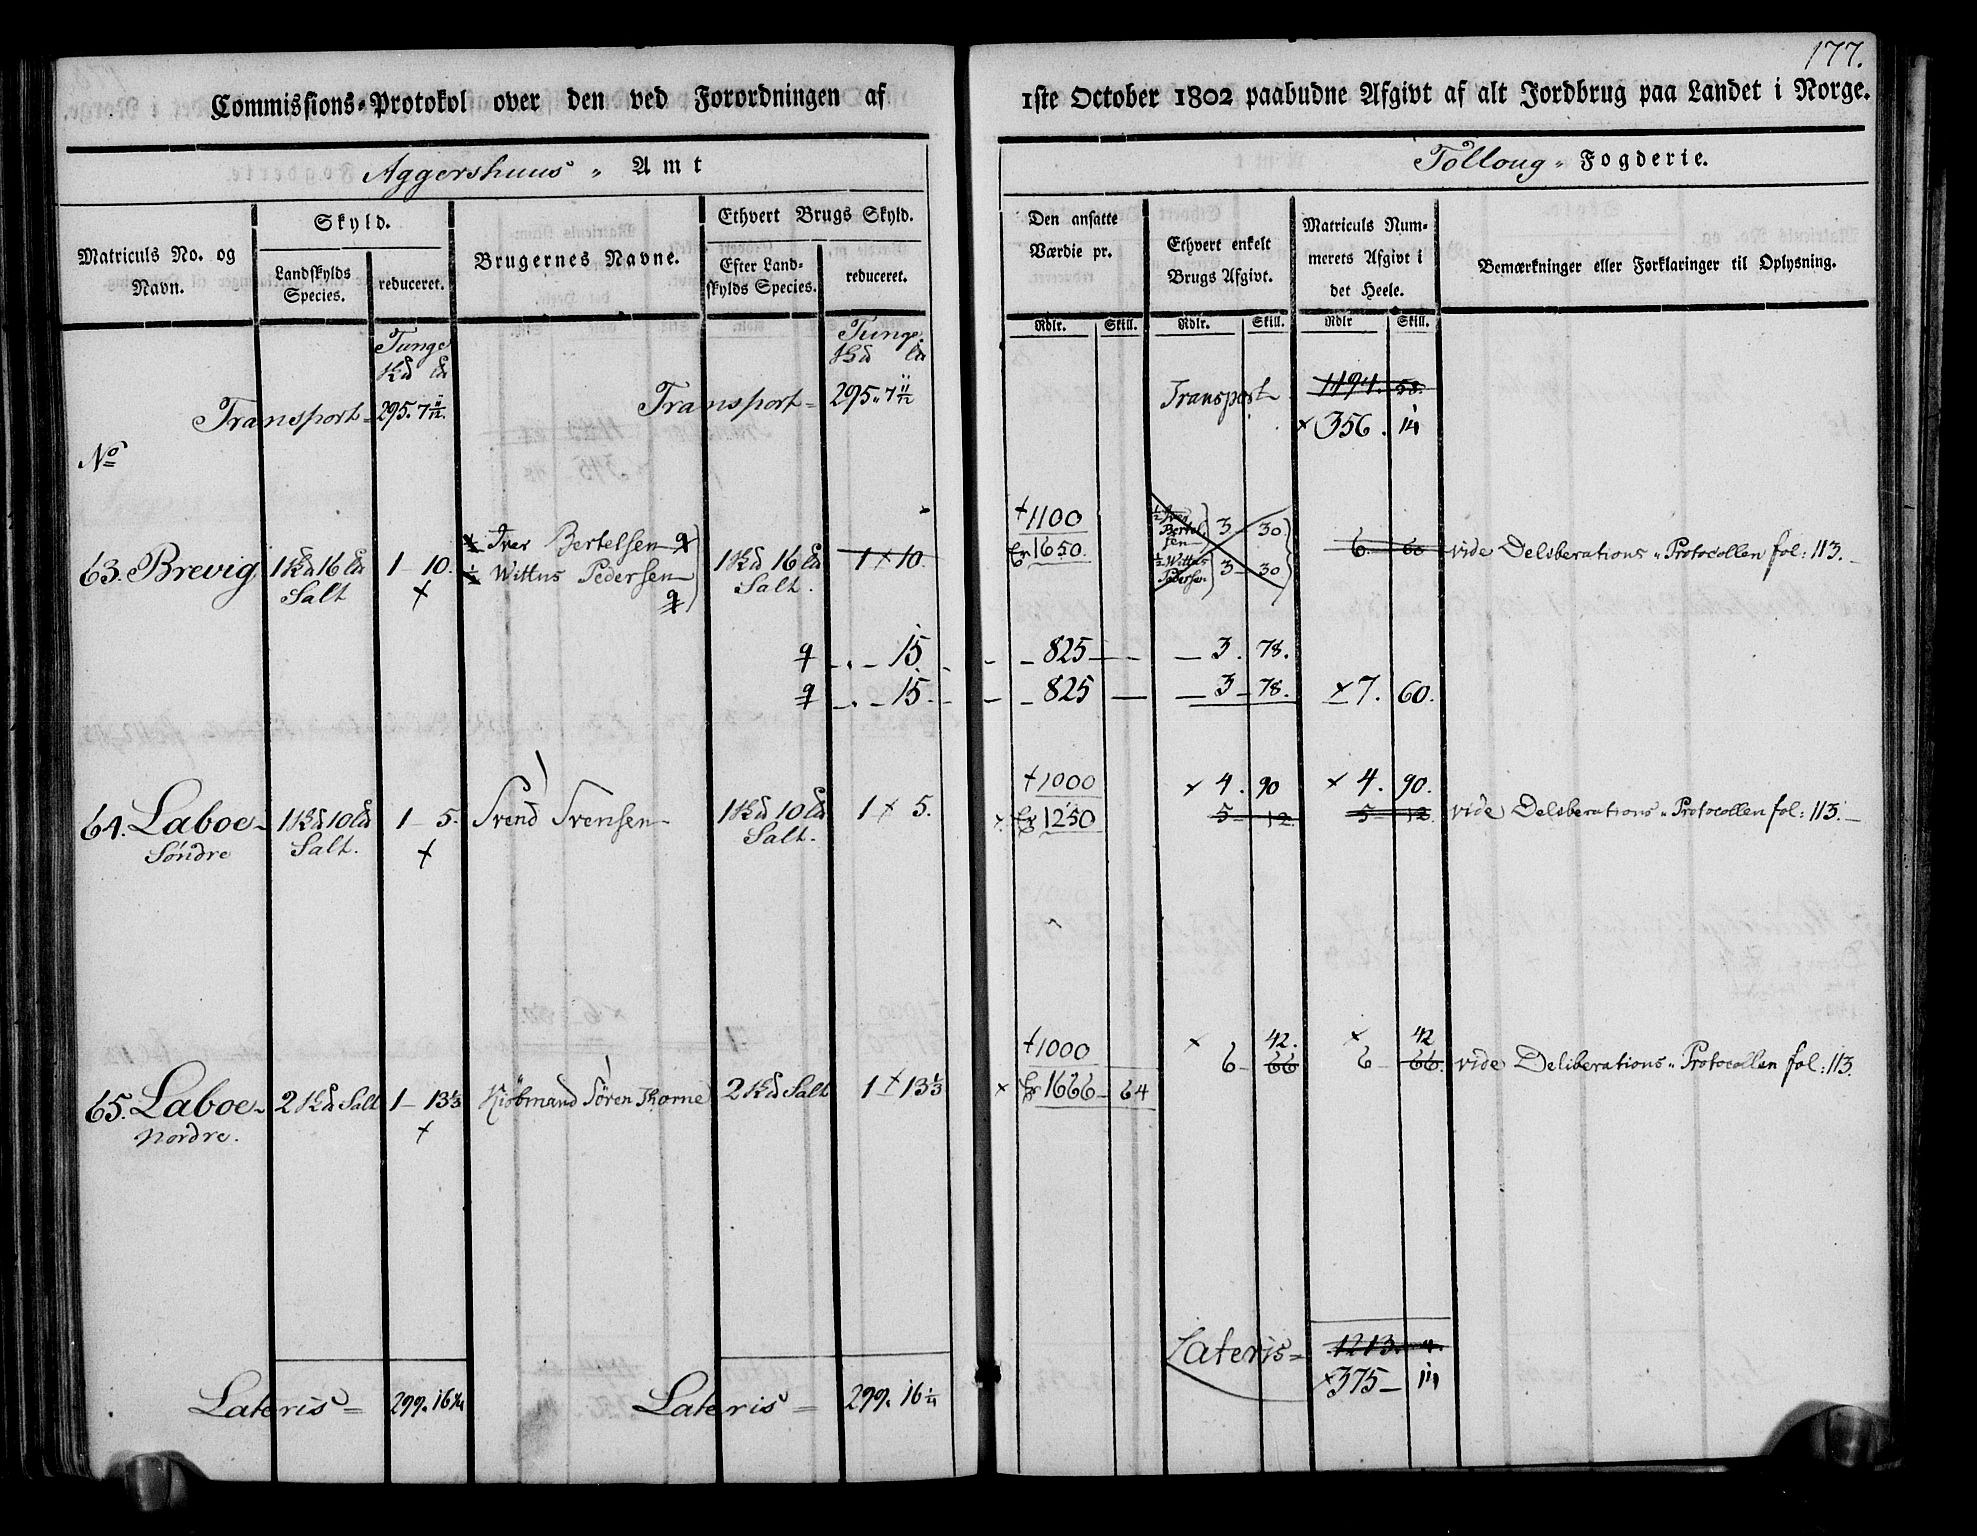 177.
Commissions-Protokol over den ved Forordningen af 1ste October 1802 paabudne Afgivt af alt Jordbrug paa Landet i Norge.
Aggershuus Amt
Folloug Fogderie.
Matriculs No. og Navn.
Skyld.
Landskylds Species.
reduceret.
Brugernes Navne.
Ethvert Brugs Skyld.
Efter Landskylds Species.
reduceret.
Den ansatte Værdie pr.
Ethvert enkelt Brugs Afgivt.
Matriculs Nummerets Afgivt i det Heele.
Bemærkninger eller Forklaringer til Oplysning.
Rdlr. Skill. Rdlr. Skill. Rdlr Skill.
Tunge Tunge
Transport 295. 7 11/12. Transport 295. 7 11/12 Transport 1194. 58.
× 356.
No
63. Brevig 1 16 Salt 1 - 10. ½ Iver Bertelsen ½ Wittus Pedersen 1 16 Salt. 1 × 10. + 1100 1650. ½ Iver Bertelsen 3 30. ½ Wittus Pedersen 3 - 30 6. 60 vide Delsberations Protocollen fol: 113.
15. 825 3. 78.
15. 825 3 - 78. × 7. 60.
64. Laboe Søndre 1 10 Salt. 1 - 5. Svend Svensen 1 10 Salt. 1 × 5. + 1000 1250 × 4. 90 × 4. 90.
5 - 12. 5 - 12 vide Delsberations Protocollen fol: 113.
65. Laboe Nordre. 2 Salt 1 - 13⅓ Kiøbmand Søren Thorne 2 Salt 1 × 13⅓ + 1000 × 1666 - 64 × 42. × 42
6 - 66 6 - 66. vide Deliberations Protocollen fol: 113.
Lateris 299. 16 Lateris 299. 16 Lateris 1213. 4.
× 375 -